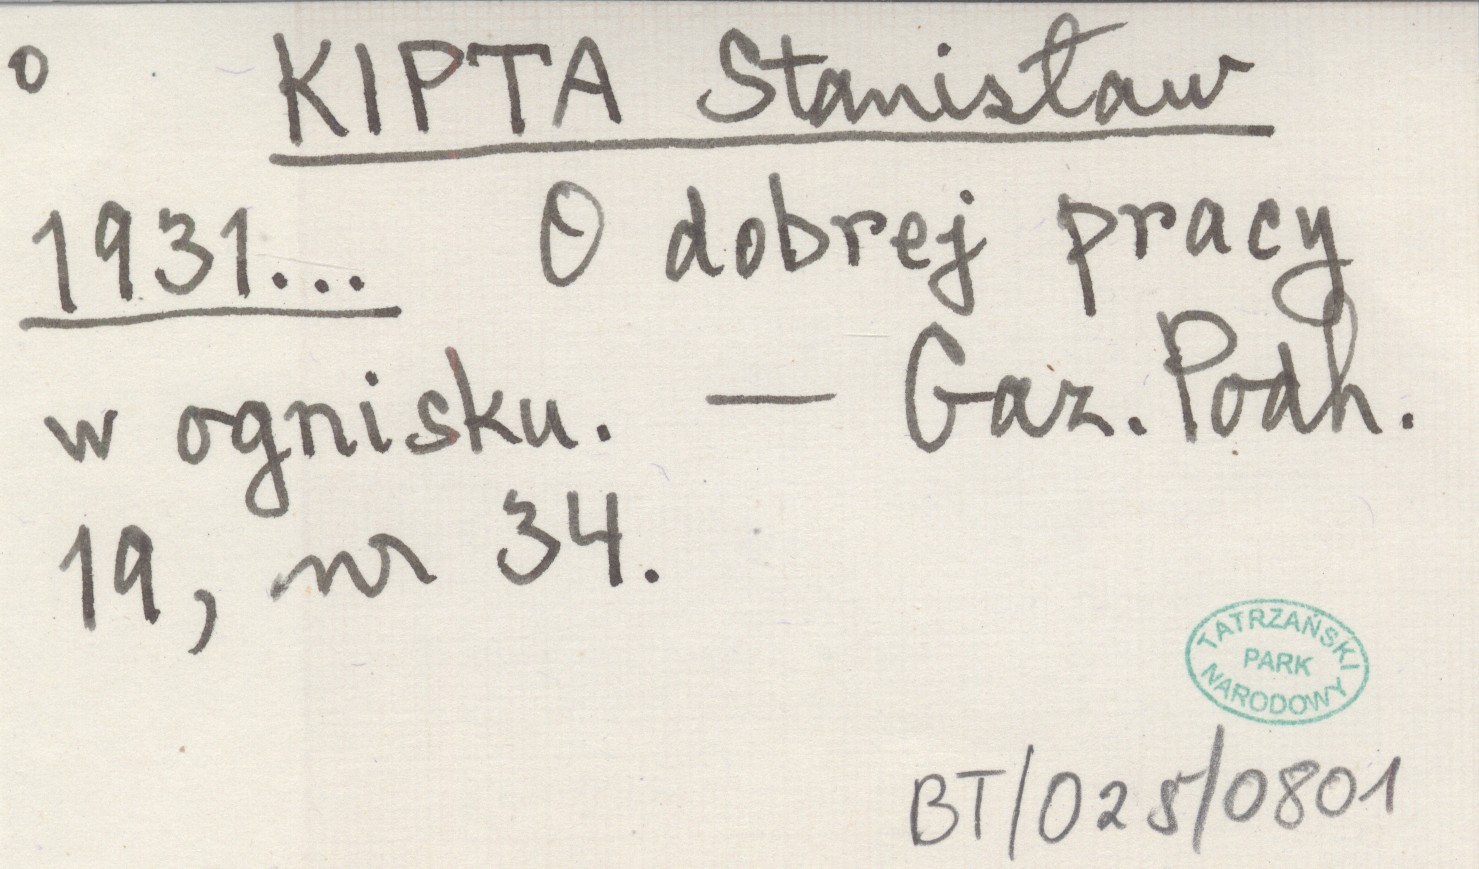 o KIPTA Stanisław
1931... O dobrej pracy
w ognisku. — Gaz. Podh.
19, nr 34.
TATRZAŃSKI
PARK
NARODOWY
BT/025/0801